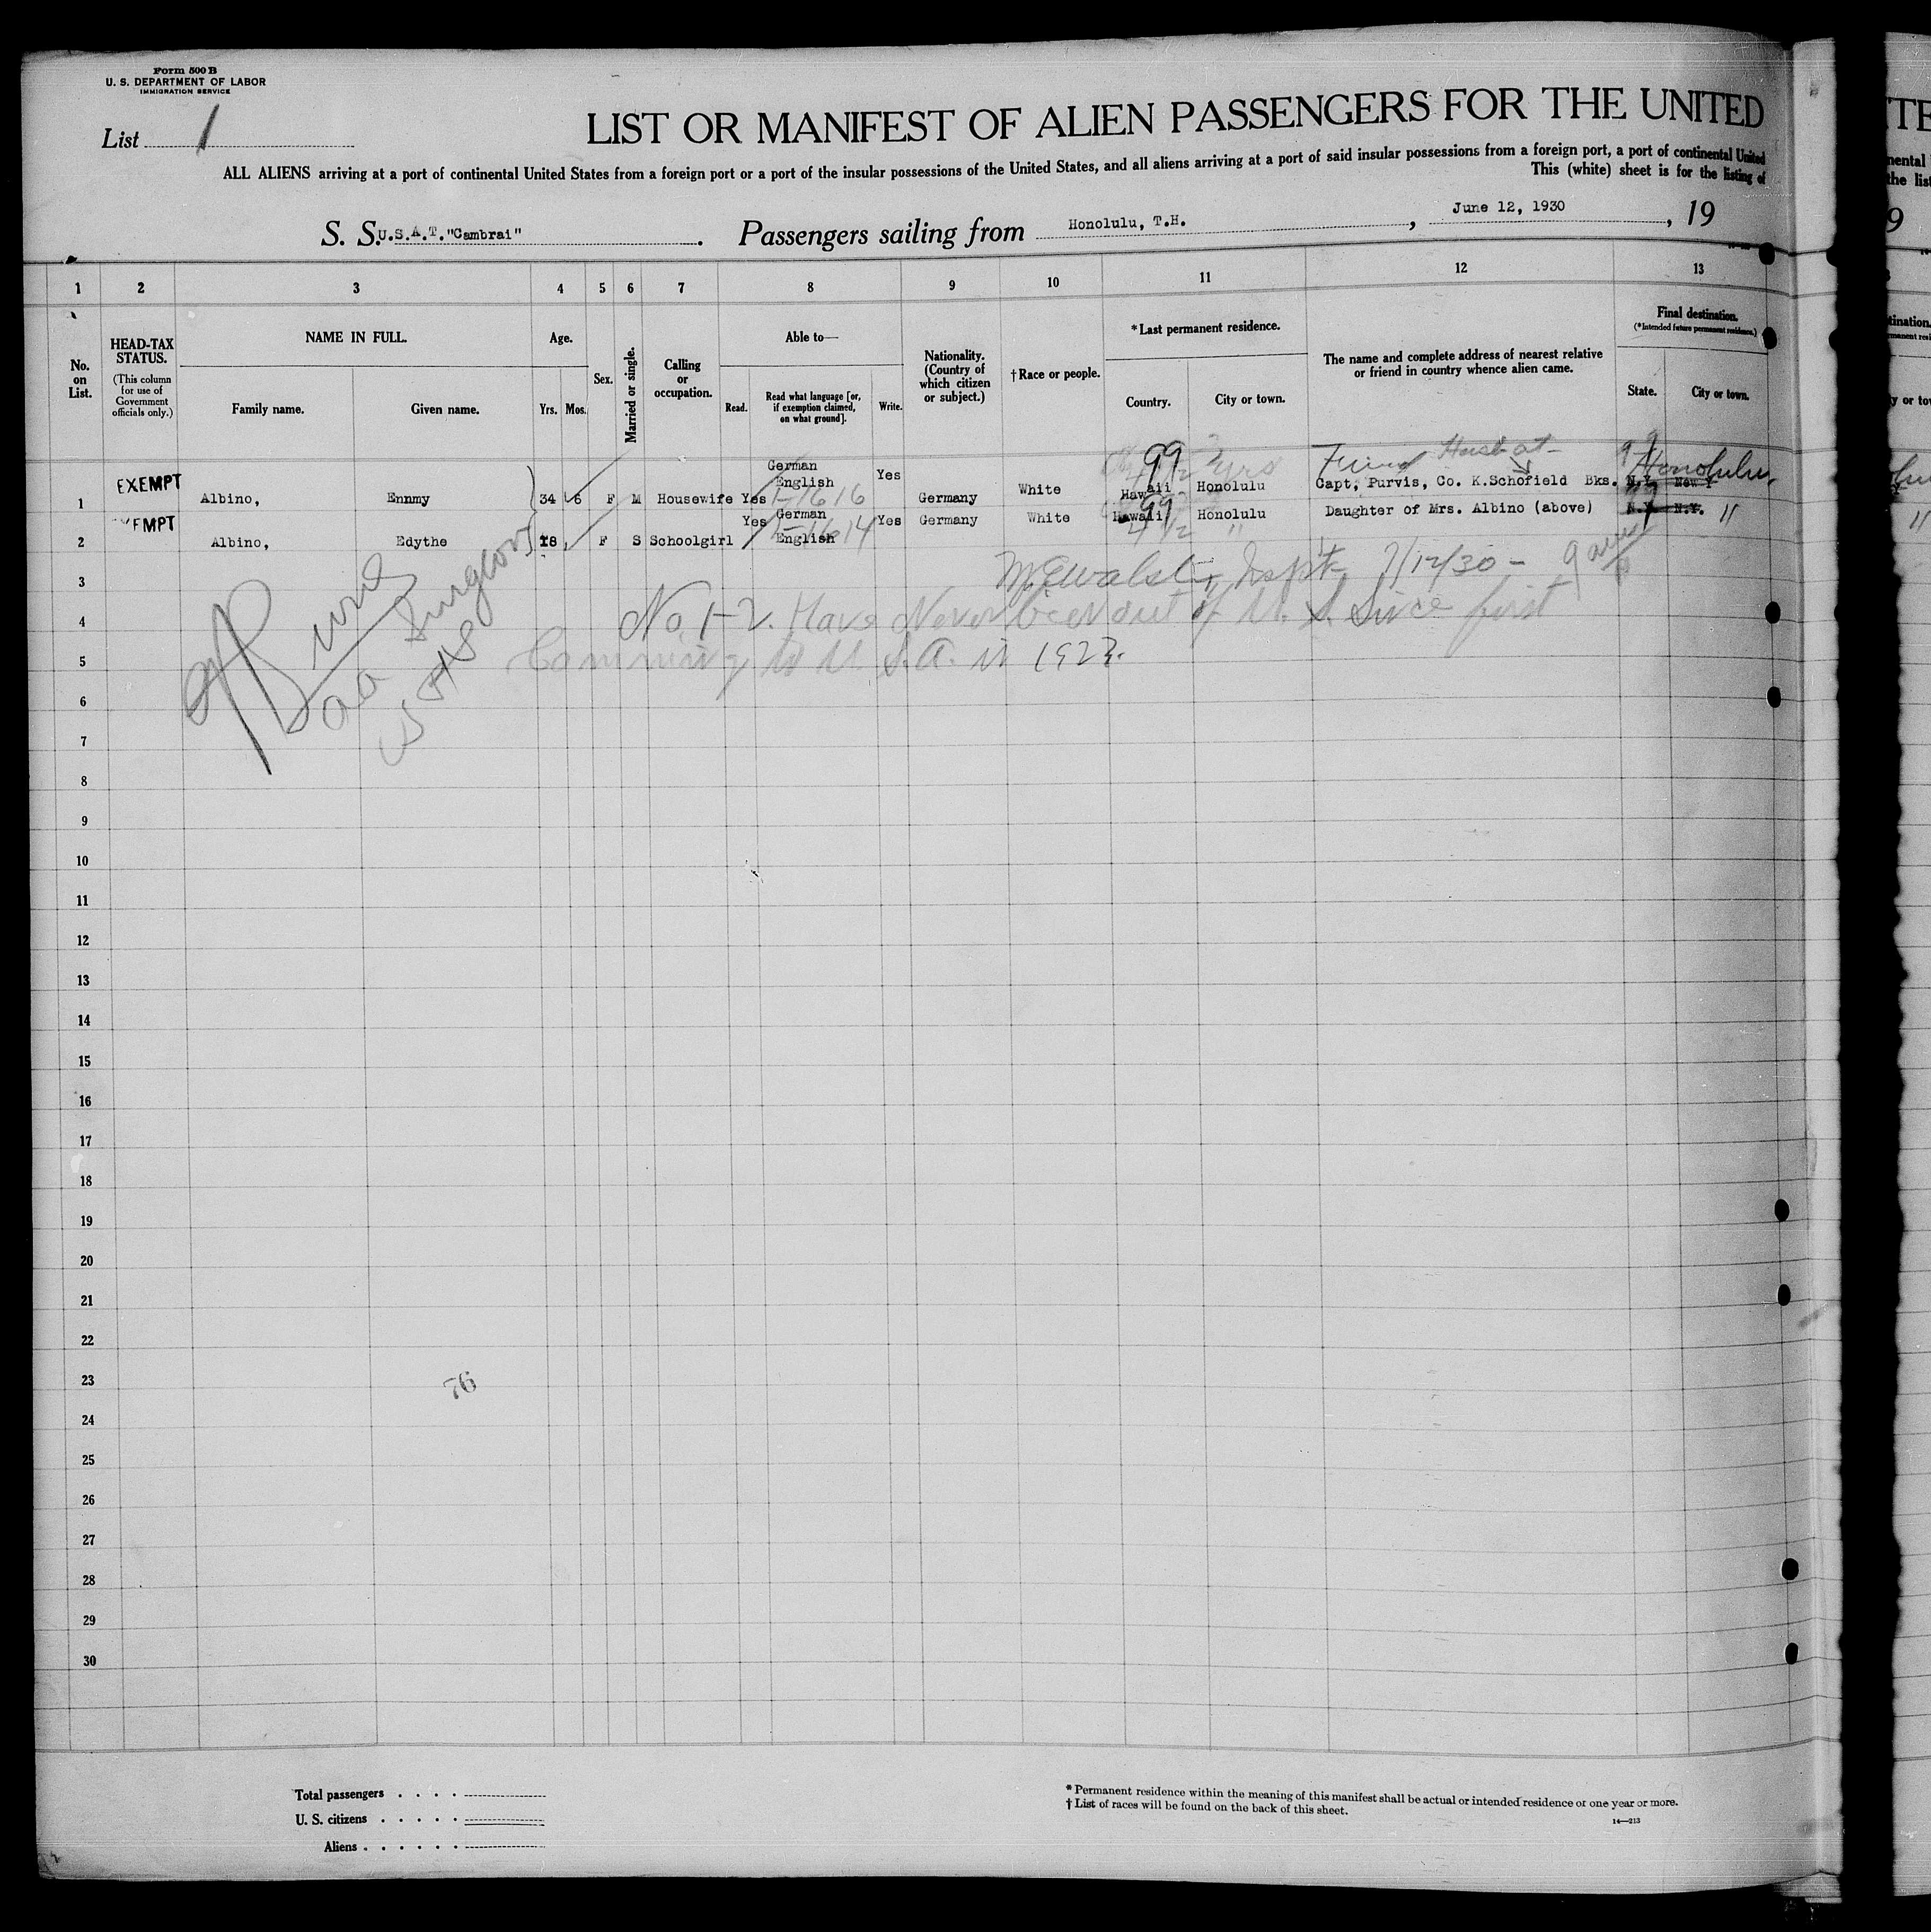 Form 500 B
U. S. DEPARTMENT OF LABOR
IMMIGRATION SERVICE
List 1
LIST OR MANIFEST OF ALIEN PASSENGERS FOR THE UNITED
ALL ALIENS arriving at a port of continental United States from a foreign port or a port of the insular possessions of the United States, and all aliens arriving at a port of said insular possessions from a foreign port, a port of continental United
This (white) sheet is for the listing of
S. S. U.S.A.T."Cambrai". Passengers sailing from Honolulu, T.H., June 12, 1930, 19
1 2 3 4 5 6 7 8 9 10 11 12 13
No. on List.
HEAD-TAX STATUS.
(This column for use of Government officials only.)
NAME IN FULL.
Family name. Given name.
Age.
Yrs. Mos.
Sex.
Married or single.
Calling or occupation.
Able to—
Read.
Read what language [or, if exemption claimed, on what ground].
Write.
Nationality. (Country of which citizen or subject.)
†Race or people.
*Last permanent residence.
Country. City or town.
The name and complete address of nearest relative or friend in country whence alien came.
Final destination.
(*Intended future permanent residence.)
State. City or town.
99 yrs Friend Husb at Honolulu
EXEMPT 1 Albino, Ennmy 34 6 F M Housewife Yes German English Yes Germany White Hawaii Honolulu Capt, Purvis, Co. K.Schofield Bks. N.Y. New Y
1-16 16
EMPT 2 Albino, Edythe 18 F S Schoolgirl Yes German English Yes Germany White Hawaii Honolulu Daughter of Mrs. Albino (above) N.Y. N.Y. "
99 4 1/2 "
Inspt 7/12/30 -
No. 1-2. Have Never been out of U. S. Since first
Comming to U.S.A. in 1923.
Surgeon
USPHS
3
4
5
6
7
8
9
10
11
12
13
14
15
16
17
18
19
20
21
22
23
76
24
25
26
27
28
29
30
Total passengers . . . .
U. S. citizens . . . . .
Aliens . . . . . .
* Permanent residence within the meaning of this manifest shall be actual or intended residence of one year or more.
† List of races will be found on the back of this sheet.
14—213